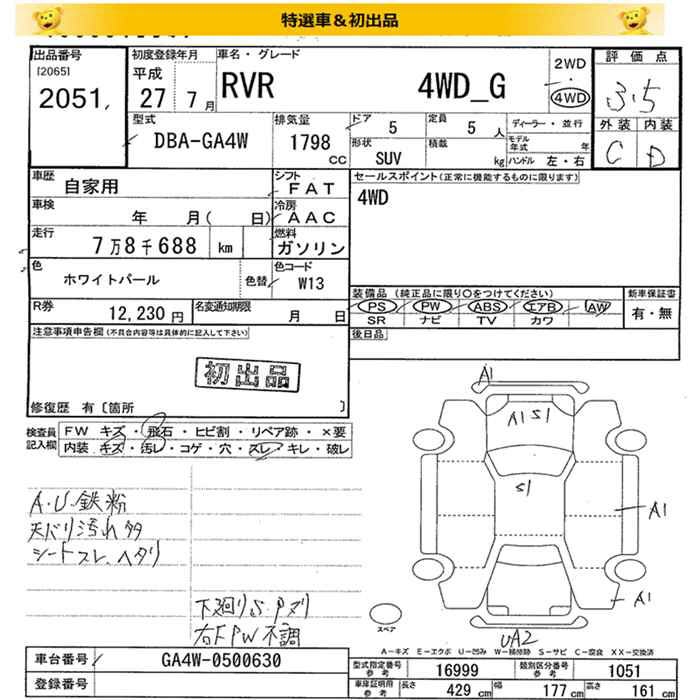 特選車&初出品
出品番号
[20651]
2051
初度登録年月
平成
27 7月
車名・グレード
RVR 4WD_G
2WD
・
4WD
評価点
3.5
外装 内装
C D
型式
DBA-GA4W
排気量
1798
CC
ドア
5
定員
5 人
形状
SUV
積載
kg
ディーラー・並行
モデル年式 年
ハンドル 左・右
車歴
自家用
シフト
FAT
車検
年 月( 日)
冷房
AAC
走行
7万8千688 km
燃料
ガソリン
色
ホワイトパール
色替
色コード
W13
R券
12,230円
名変通知期限
月 日
セールスポイント(正常に機能するものに限ります)
4WD
装備品(純正品に限り○をつけてください)
PS PW ABS エアB AW
SR ナビ TV カワ
新車保証書
有・無
後日品
注意事項申告欄(不具合内容等は具体的に記入して下さい)
初出品
修復歴 有〔箇所 〕
検査員
記入欄
FW キズ・飛石・ヒビ割・リペア跡・×要
内装・キズ・汚レ・コゲ・穴・スレ・キレ・破レ
A・U 鉄粉
天バリ汚れ多
シートスレ、ヘタリ
下廻りS・Pヌリ
右FPW不調
A1
A1 S1
S1
A1
A1
UA2
スペア
A-キズ E-エクボ U-凹み W-補修跡 S-サビ C-腐食 XX-交換済
車台番号
GA4W-0500630
登録番号
型式指定番号
参考
16999
類別区分番号
参考
1051
車庫証明用
参考
長さ 429 cm
幅 177 cm
高さ 161 cm